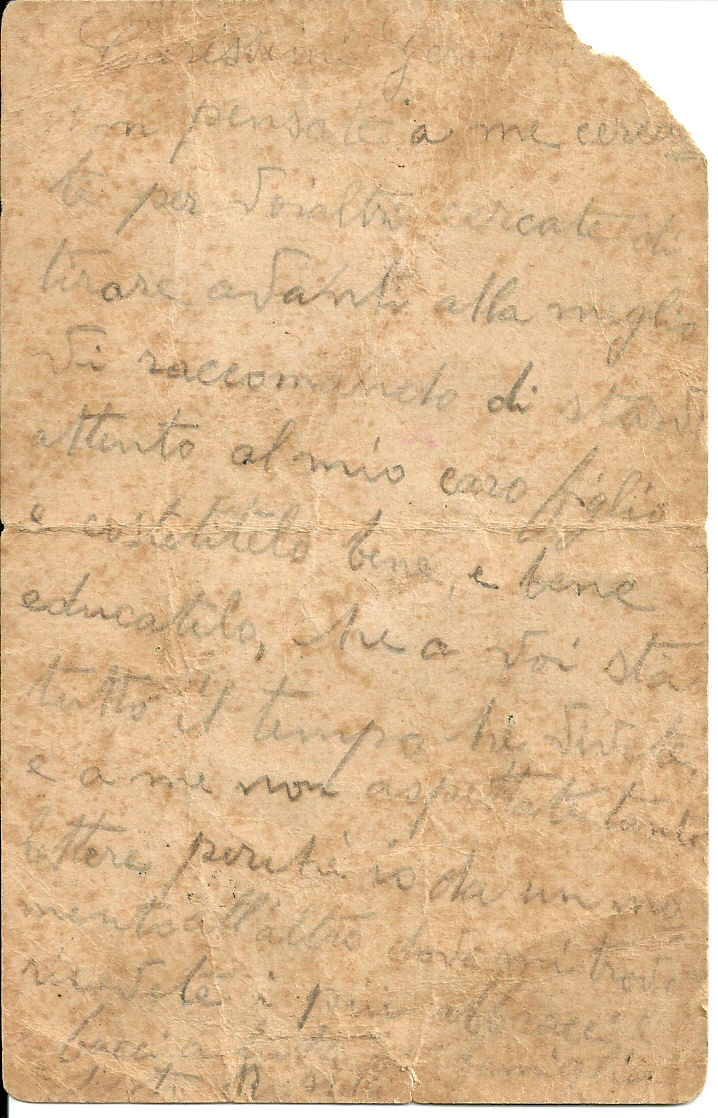 Carissimi
non pensate a me cerca-
te per voialtri cercate di
tirare avanti alla meglio
vi raccomando di starvi
attento al mio caro figlio
e costotitelo bene, e bene
educatilo, che a voi sta
tutto il tempo che vivete,
e a me non aspettate tanto
lettere perché io da un mo
mento all'altro dove mi trovo
ricevete i più abbracci e
baci a tutti famiglia